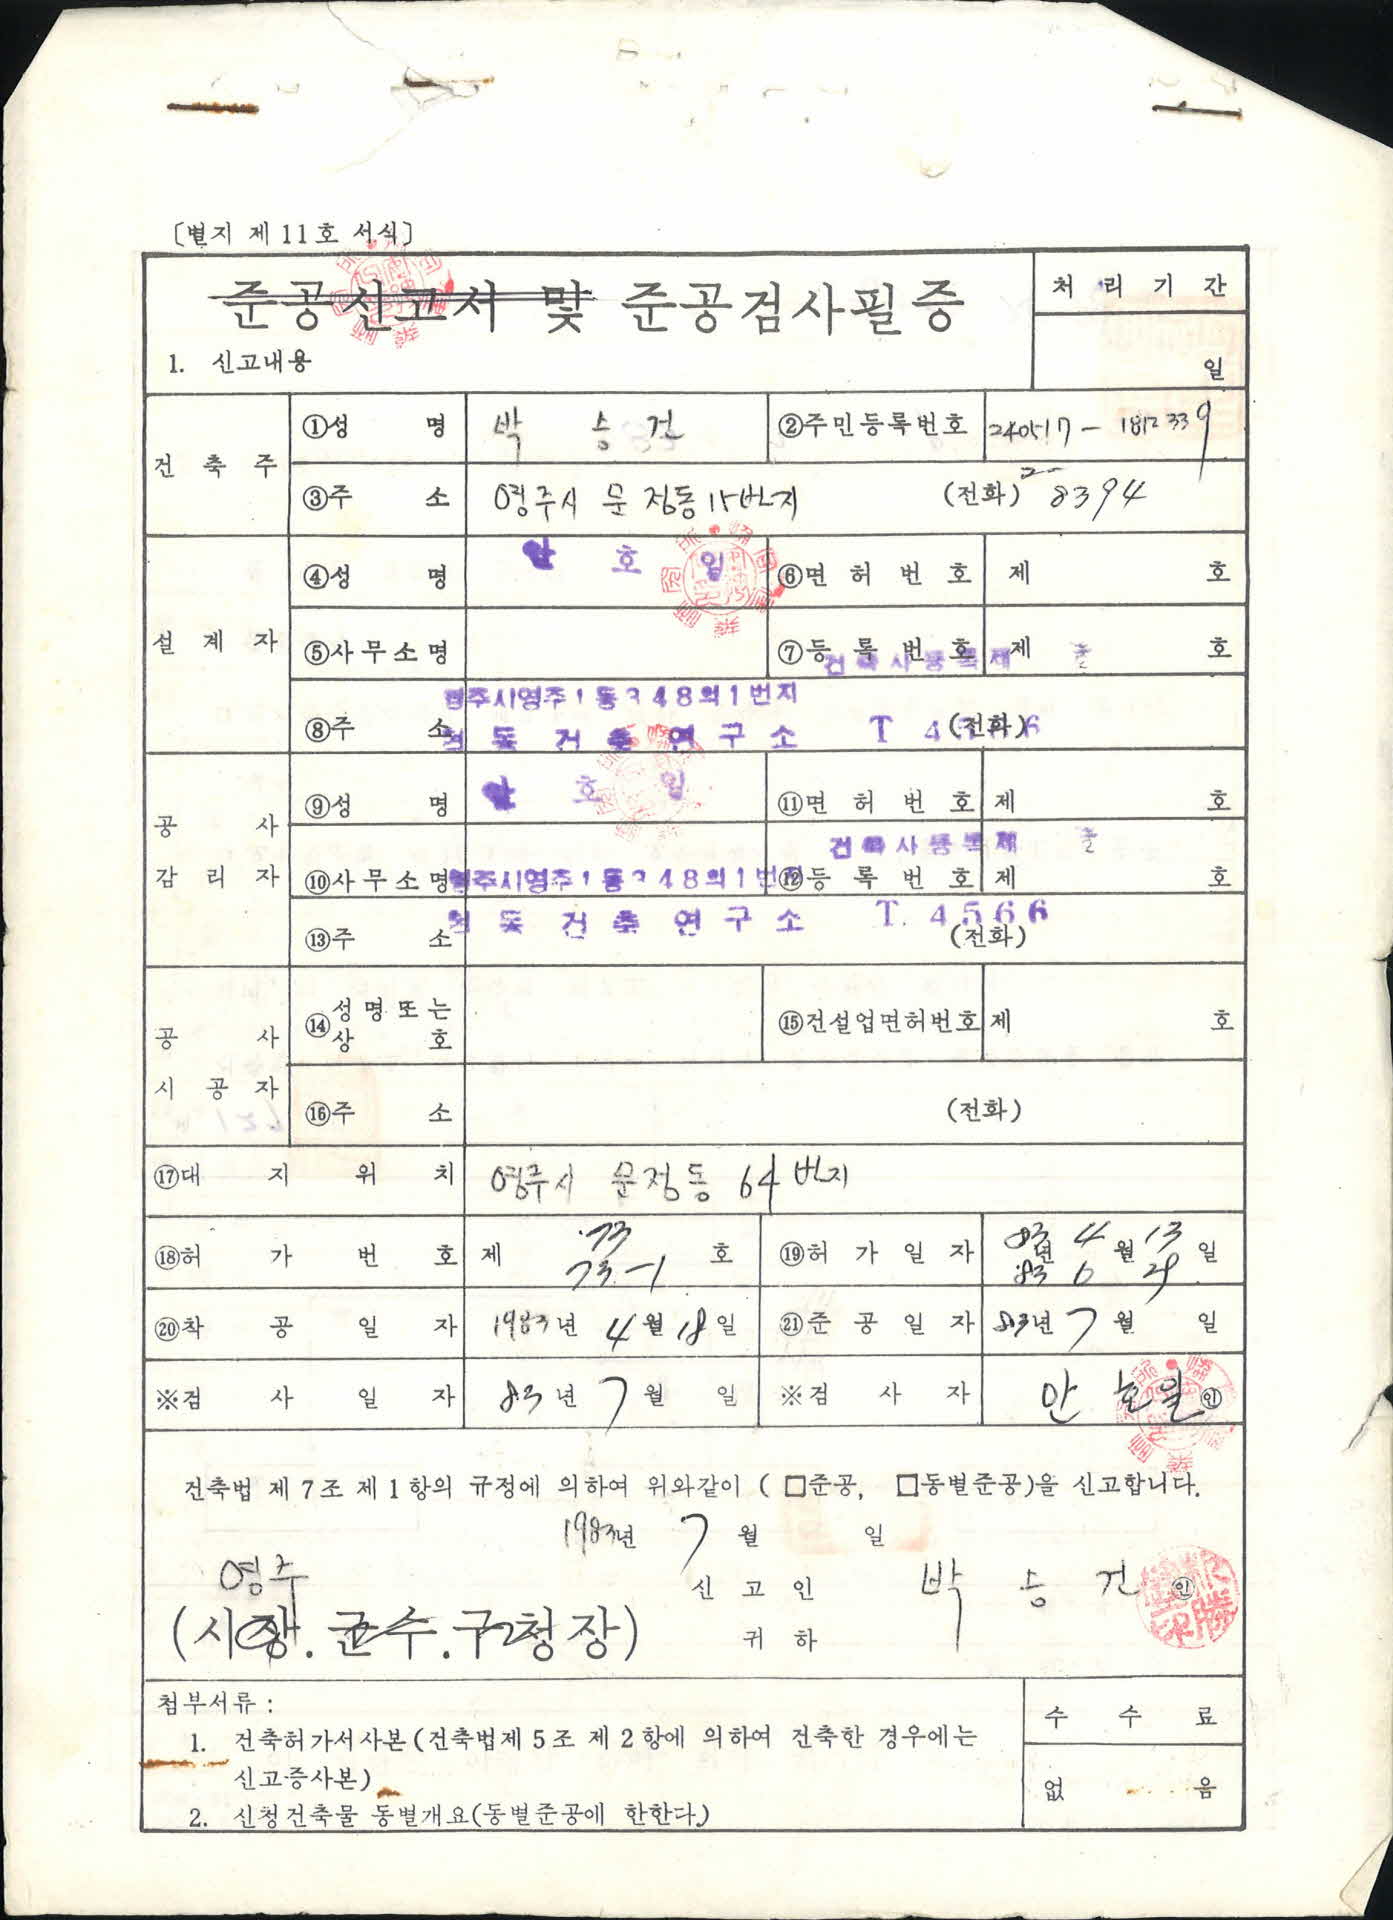 〔별지 제 11호 서식〕
준공신고서 및 준공검사필증
처 리 기 간
1. 신고내용
일
건 축 주
①성 명 박 승 건 ②주민등록번호
③주 소 영주시 문정동 15번지 (전화) 2-8394
설 계 자
④성 명 안 호 일 ⑥면 허 번 호 제 호
⑤사무소명 ⑦등 록 번 호 제 호
건축사등록제
⑧주 소 영주시영주1동348의1번지 (전화)
건 축 연 구 소 T 4566
공 사 감 리 자
⑨성 명 안 호 일 ⑪면 허 번 호 제 호
건축사등록제
⑩사무소명 영주시영주1동348의1번지 ⑫등 록 번 호 제 호
건 축 연 구 소 T. 4566
⑬주 소 (전화)
공 사 시 공 자
⑭성명또는 상 호 ⑮건설업면허번호 제 호
⑯주 소 (전화)
⑰대 지 위 치 영주시 문정동 64번지
⑱허 가 번 호 제 73 호 ⑲허 가 일 자 83년 4월 13일
73-1 83 6 28
⑳착 공 일 자 1983년 4월 18일 ㉑준 공 일 자 83년 7월 일
※검 사 일 자 83년 7월 일 ※검 사 자 안 호 일 ㊞
건축법 제7조 제1항의 규정에 의하여 위와같이 ( □준공, □동별준공)을 신고합니다.
1983년 7월 일
영주
신 고 인 박 승 건 ㊞
(시장.군수.구청장) 귀 하
첨부서류 :
수 수 료
1. 건축허가서사본(건축법제5조 제2항에 의하여 건축한 경우에는
신고증사본)
없 음
2. 신청건축물 동별개요(동별준공에 한한다.)